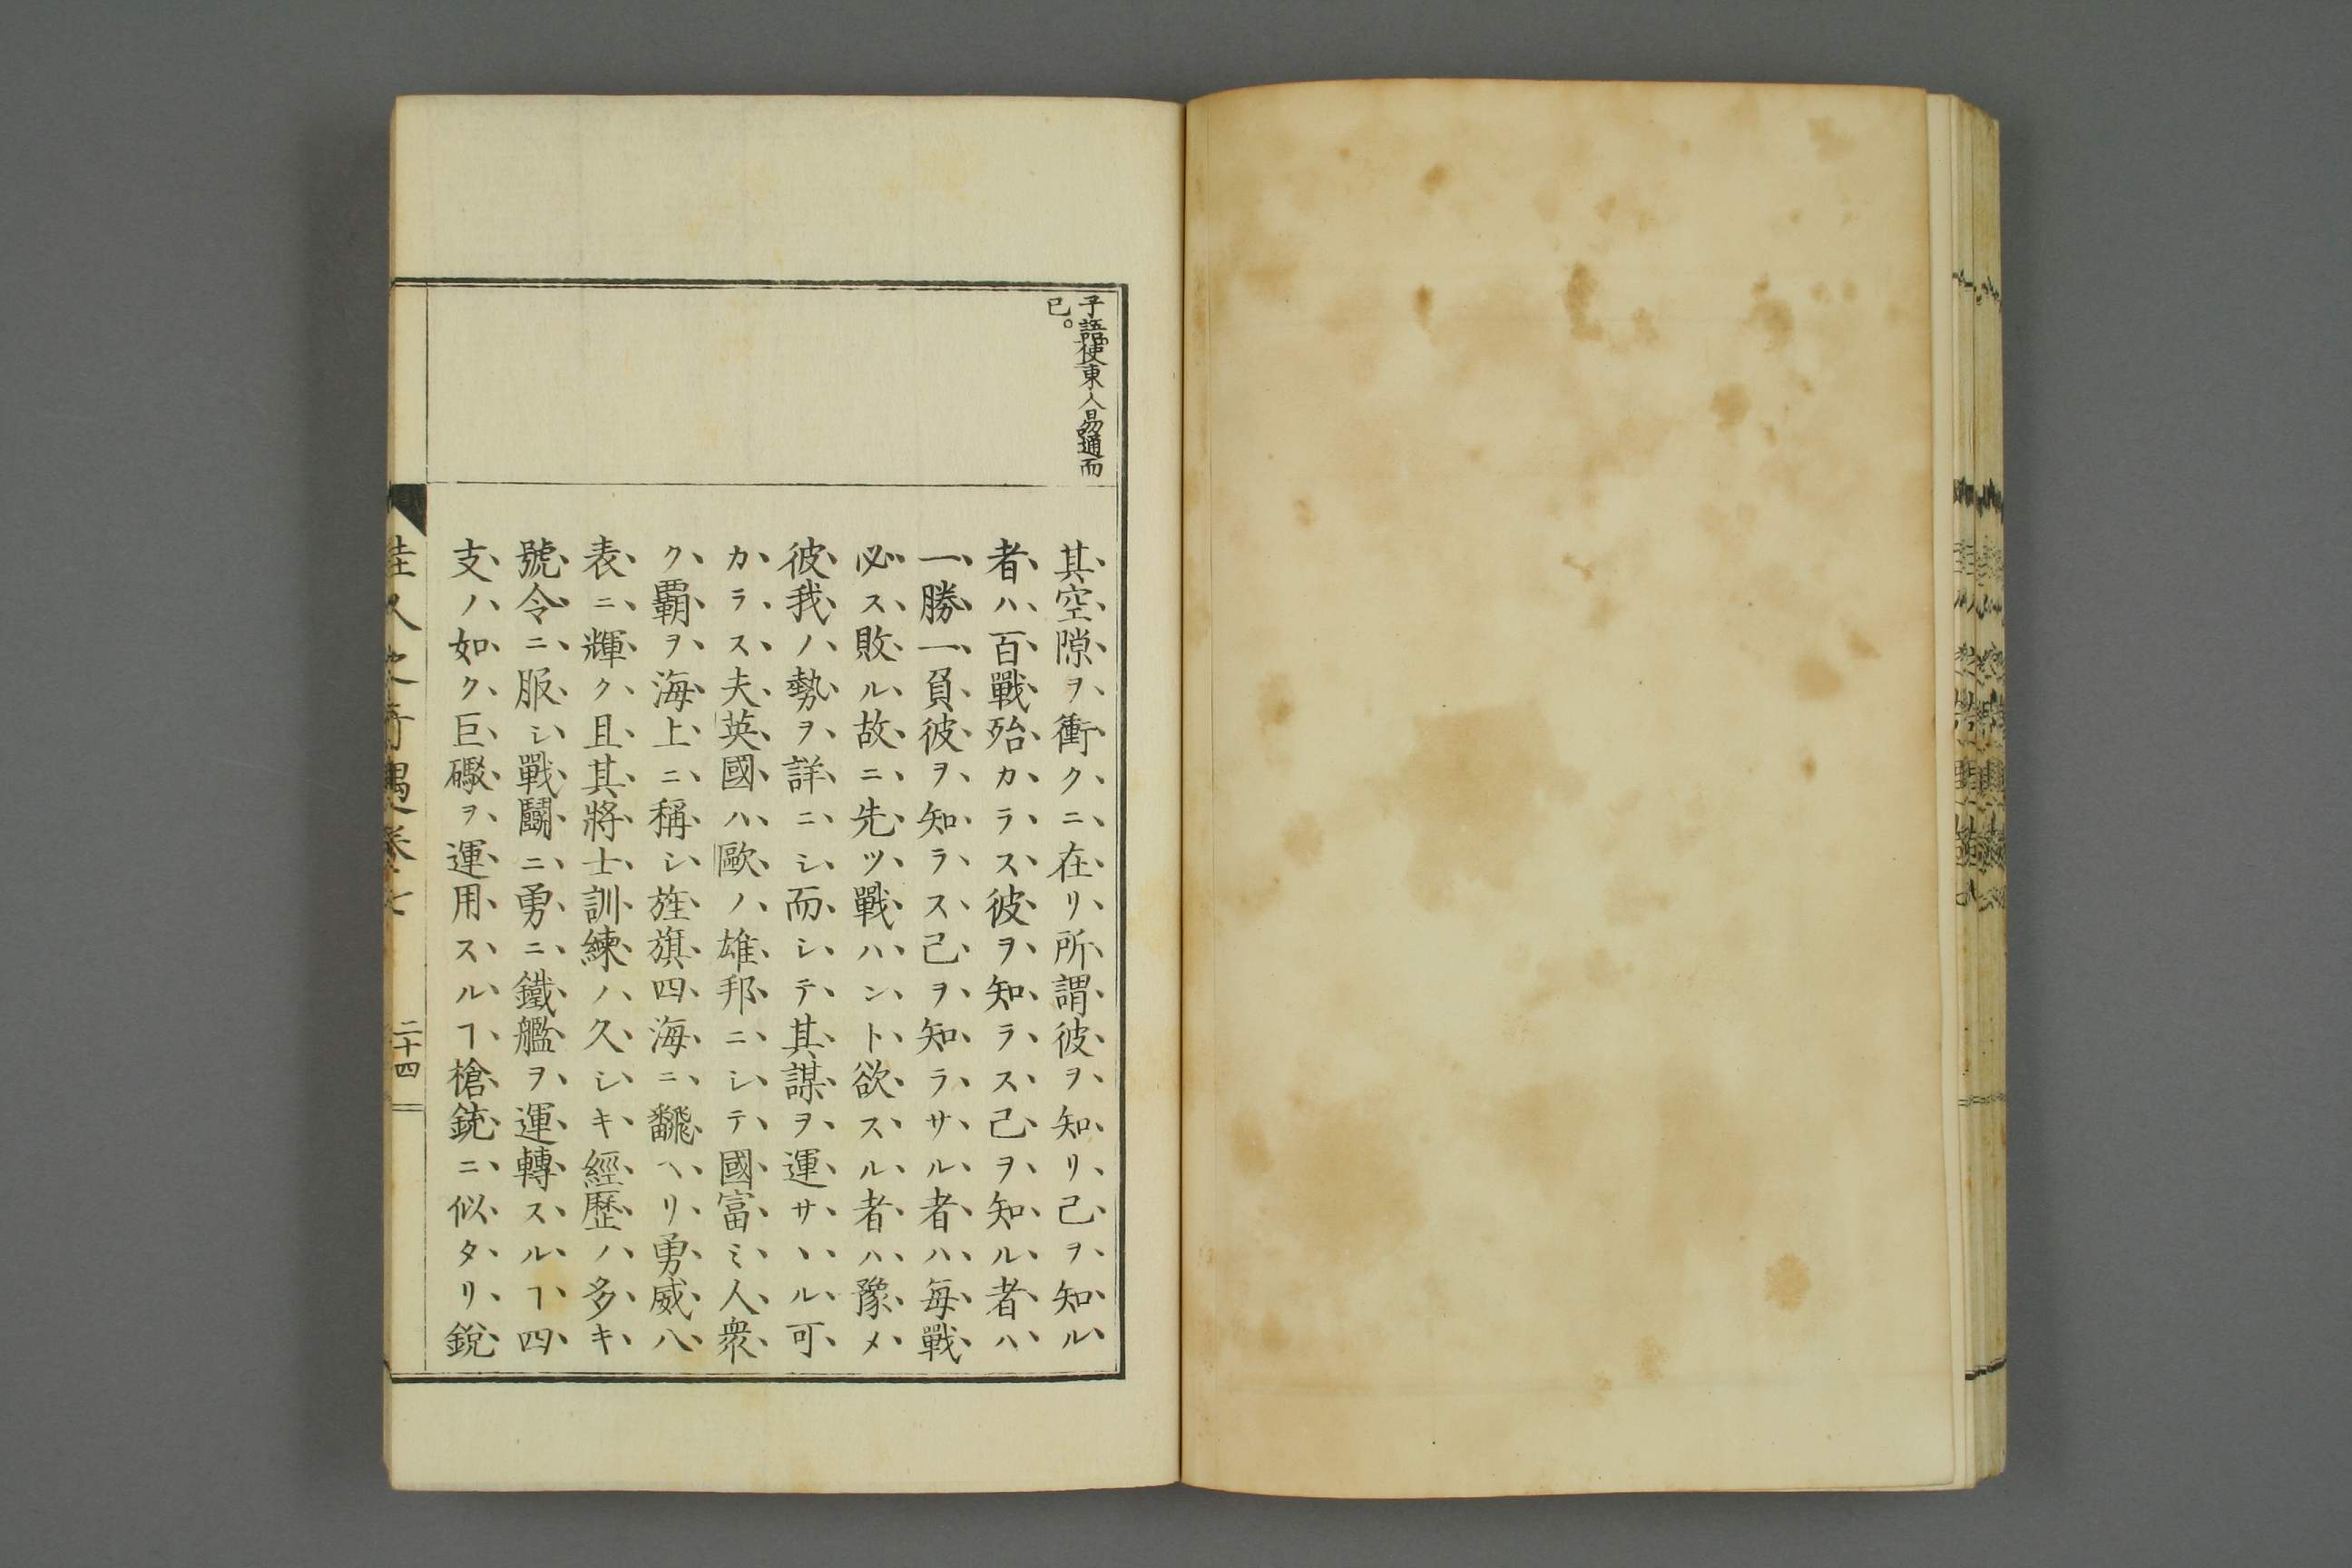 子語使東人易通而
已。
其空隙ヲ衝クニ在リ所謂彼ヲ知リ己ヲ知ル
者ハ百戰殆カラス彼ヲ知ラス己ヲ知ル者ハ
一勝一負彼ヲ知ラス己ヲ知ラサル者ハ每戰
必ス敗ル故ニ先ツ戰ハント欲スル者ハ豫メ
彼我ノ勢ヲ詳ニシ而シテ其謀ヲ運サヽル可
カラス夫英國ハ歐ノ雄邦ニシテ國富ミ人衆
ク覇ヲ海上ニ稱シ旌旗四海ニ飜ヘリ勇威八
表ニ輝ク且其將士訓練ノ久シキ經歷ノ多キ
號令ニ服シ戰鬪ニ勇ニ鐵艦ヲ運轉スルヿ四
支ノ如ク巨礮ヲ運用スルヿ槍銃ニ似タリ銳
佳人之奇遇卷七 二十四